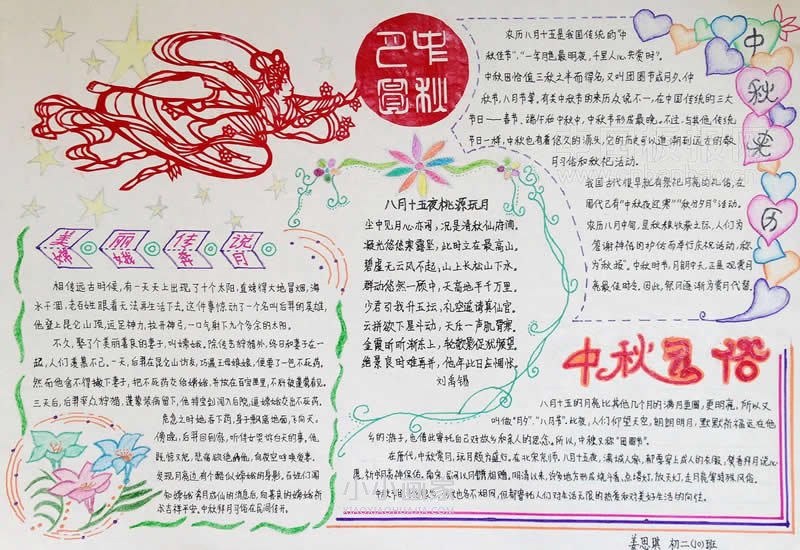 中秋
月圆
中秋来历
农历八月十五是我国传统的"中
秋佳节"、"一年月色最明夜,千里人心共赏时"。
中秋因恰值三秋之半而得名,又叫团圆节或月夕、仲
秋节、八月节等。有关中秋节的来历众说不一,在中国传统的三大
节日——春节、端午和中秋中,中秋节形成最晚。不过,与其他传统
节日一样,中秋也有着悠久的源头,它的历史可以追溯到远古的敬
月习俗和秋祀活动。
我国古代很早就有祭祀月亮的礼俗,在
周代已有"中秋夜迎寒""秋分夕月"活动。
农历八月中旬,是秋粮收获之际,人们为
答谢神祇的护佑而举行庆祝活动,称
为"秋报"。中秋时节,月朗中天,正是观赏月
亮最佳时令。因此,祭月逐渐为赏月代替。
八月十五夜桃源玩月
尘中见月心亦闲,况是清秋仙府间。
凝光悠悠寒露坠,此时立在最高山。
碧虚无云风不起,山上长松山下水。
群动悠然一顾中,天高地平千万里。
少君引我升玉坛,礼空遥请真仙官。
云拼欲下星斗动,天乐一声肌骨寒。
金霞昕昕渐东上,轮欹影促犹频望。
绝景良时难再并,他年此日应惆怅。
刘禹锡
美丽佳说
嫦娥奔月
相传远古时候,有一天天上出现了十个太阳,直烤得大地冒烟,海
水干涸,老百姓眼看无法再生活下去。这件事惊动了一个名叫后羿的英雄,
他登上昆仑山顶,运足神力,拉开神弓,一口气射下九个多余的太阳。
不久,娶了个美丽善良的妻子,叫嫦娥。除传艺狩猎外,终日和妻子在一
起,人们羡慕不已。一天,后羿在昆仑山访友,巧遇王母娘娘,便要了一包不死药。
然而他舍不得撇下妻子,把不死药交给嫦娥,并放在百宝匣里,不料被蓬蒙看见。
三天后,后羿率众狩猎,蓬蒙装病留下,他持宝剑闯入后院,逼嫦娥交出不死药。
危急之时她吞下药,身子飘离地面飞向天。
傍晚,后羿回到家,听侍女哭诉白天的事,他
既惊又怒,悲痛欲绝
发现月亮边有个酷似嫦娥的身影。在他们闻
知嫦娥奔月成仙的消息后,向善良的嫦娥祈
求吉祥平安。中秋拜月习俗在民间传开。
中秋习俗
八月十五的月亮比其他几个月的满月更圆,更明亮,所以又
叫做"月夕","八月节"。此夜,人们仰望天空,朗朗明月,默默祈福远在他
乡的游子,也借此寄托自己对故乡和亲人的思念。所以,中秋又称"团圆节"。
在唐代,中秋赏月、玩月颇为盛行。在北宋京师,八月十五夜,满城人家,都要穿上成人的衣服,焚香拜月说心
明清以来,许多地方形成烧斗香、点塔灯、放天灯、走月亮等特殊风俗。
但都寄托人们对生活无限的热爱和对美好生活的向往。
小小画家
姜思琪 初二(10)班